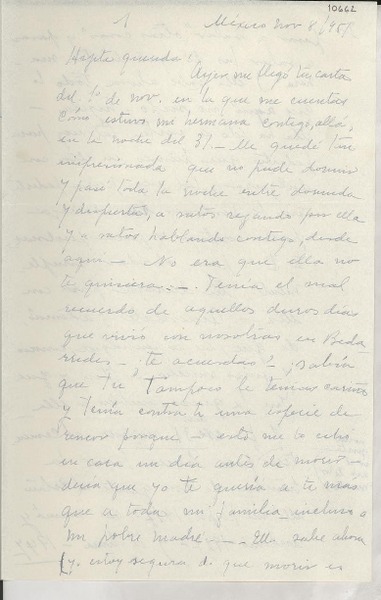 10662
1 México Nov 8/1951
querida:
Ayer me llegó tu carta
del 1º de nov. en la que me cuentas
cómo estuvo mi hermana contigo, allá,
en la noche del 31.- Me quedé tan
impresionada que no pude dormir
y pasé toda la noche entre dormida
y despierta, a ratos rezando por ella
y a ratos hablando contigo, desde
aquí - No era que ella no
te quisiera.-. Tenía el mal
recuerdo de aquellos duros días
que vivió con nosotras en Beda-
rrides - ¿te acuerdas? - ; sabía
que tú tampoco le tenías cariño
y tenía contra ti una especie de
rencor porque - esto me lo
en casa un día antes de morir -
decía que yo te quería a ti más
que a toda mi familia, incluso a
mi pobre madre - - - Ella sabe ahora
(y estoy segura de que morir es